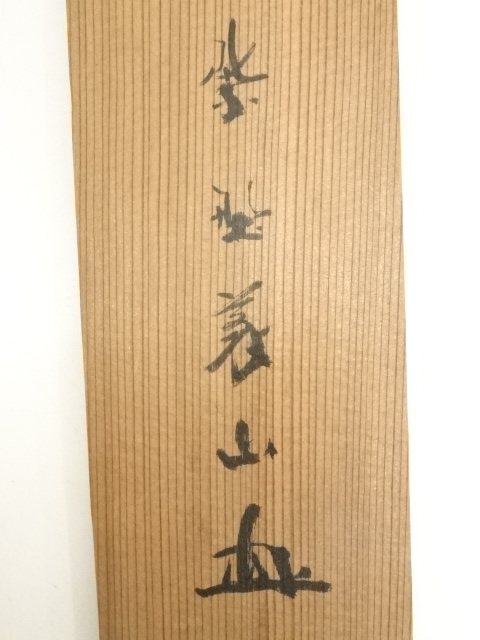 紫野義山